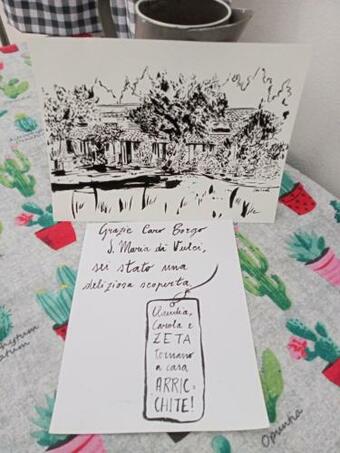 Grazie Caro Borgo
S. Maria di Vulci,
sei stato una
deliziosa scoperta.
Claudia,
Carola e
ZETA
tornano
a casa
ARRIC-
CHITE!
Opuntia